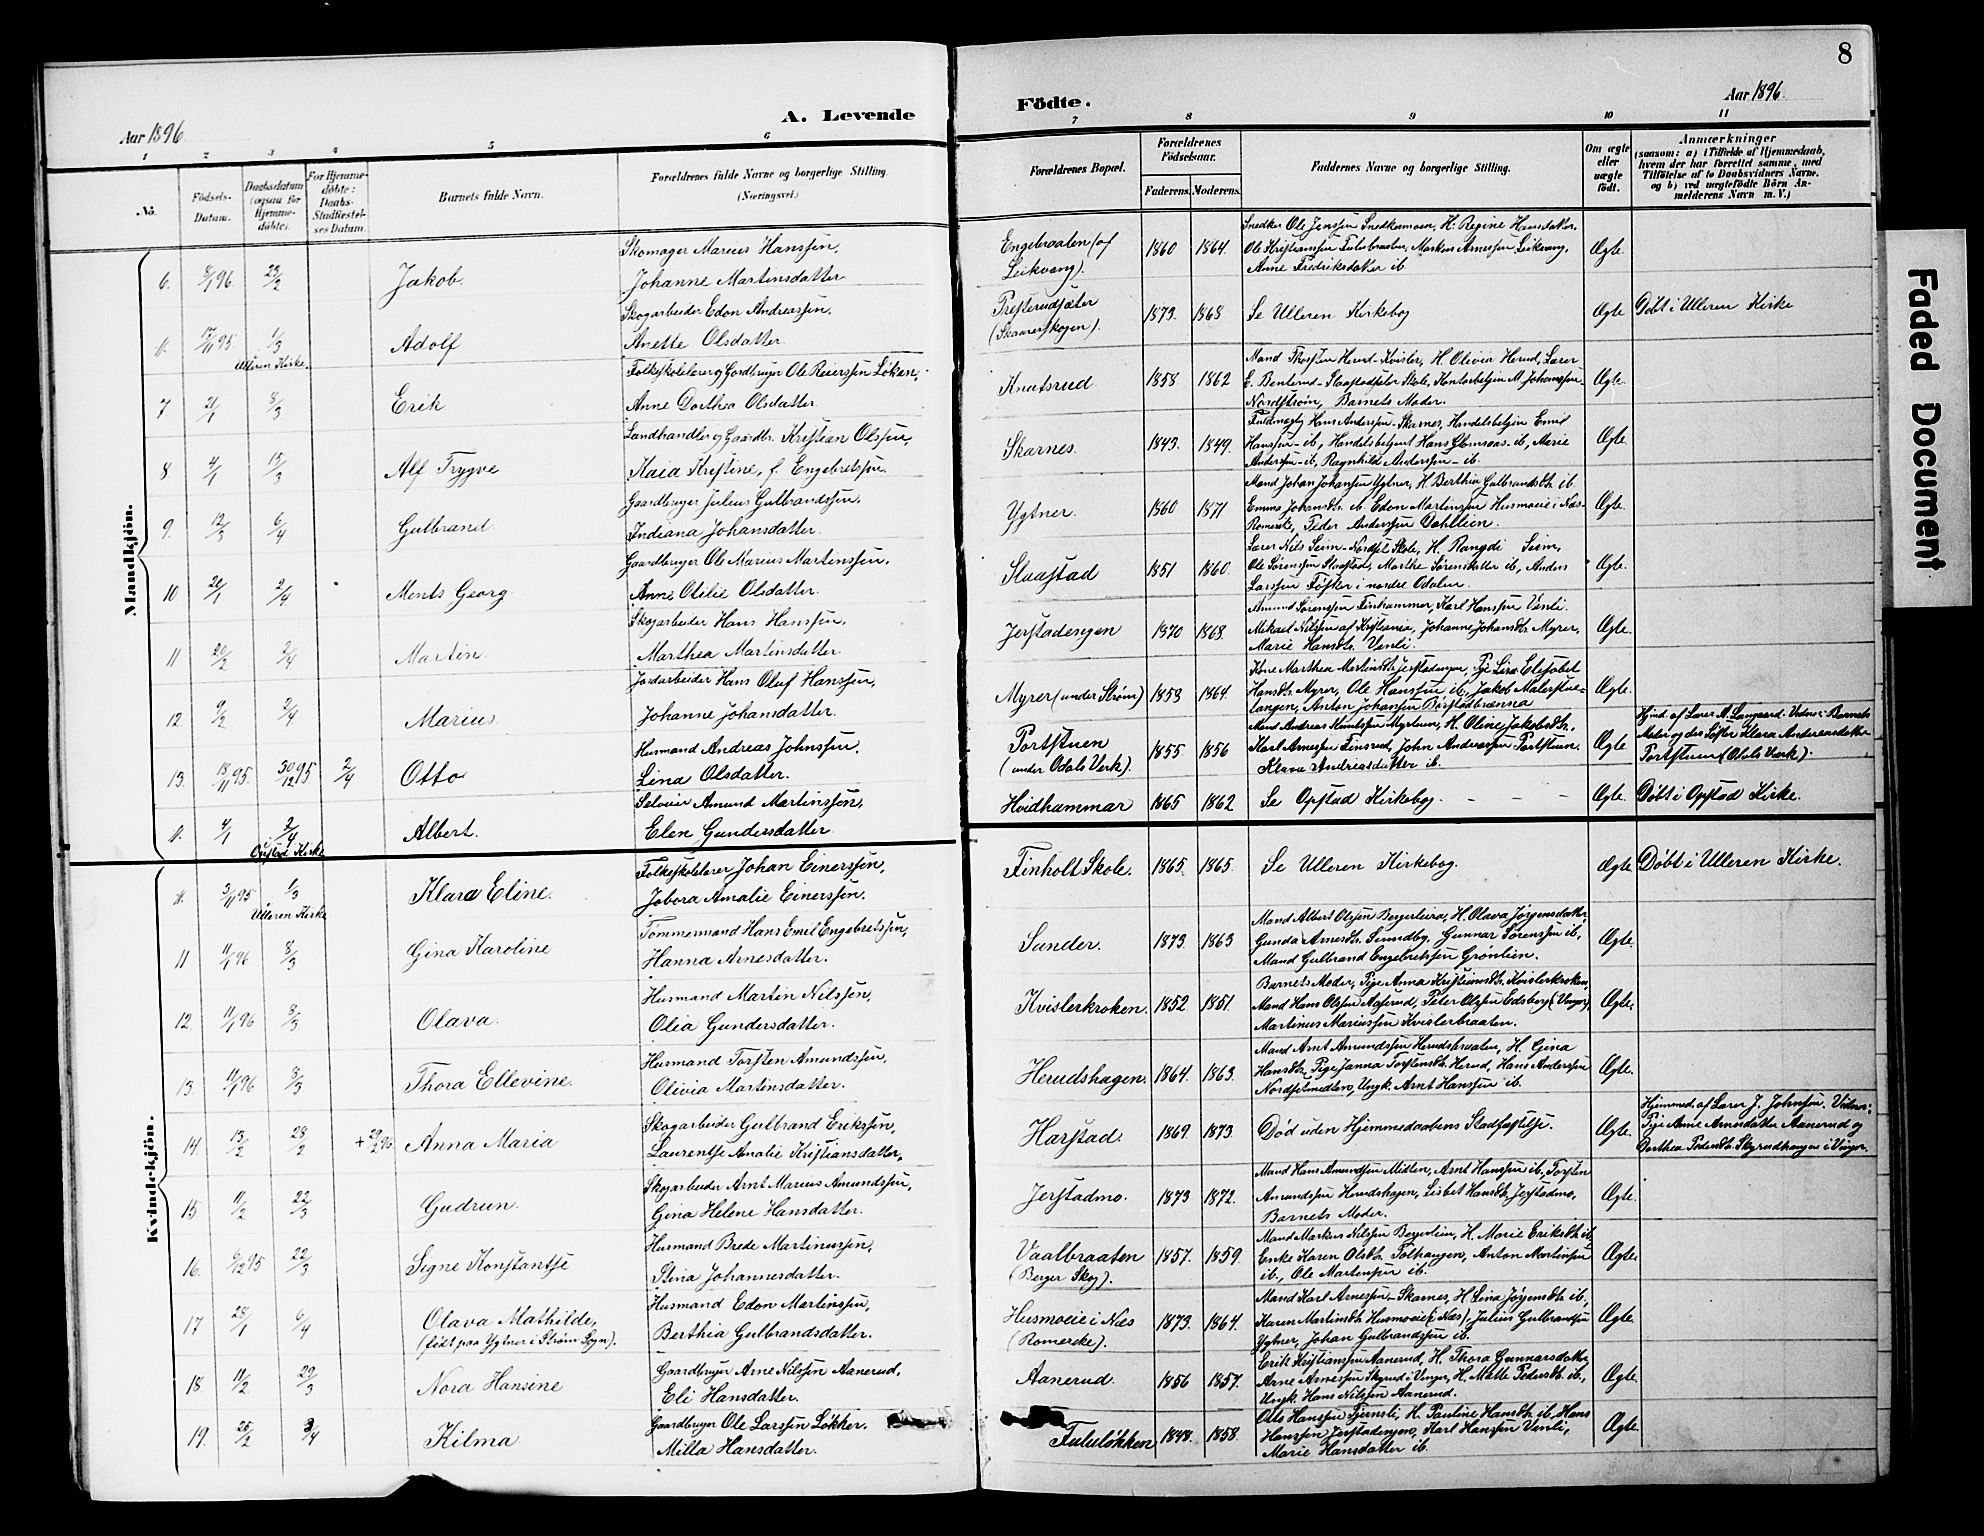 8
Aar 1896
A. Levende
Födte.
Aar 1896.
1 2 3 4 5 6 7 8 9 10 11
No.
Födsels-
Datum.
Daabsdatum
(ogsaa for
Hjemme-
döbte).
For Hjemme-
döbte:
Daabs-
Stadfæstel-
ses Datum.
Barnets fulde Navn.
Forældrenes fulde Navne og borgerlige Stilling.
(Næringsvei.)
Forældrenes Bopæl.
Forældrenes
Födselsaar.
Faderens. Moderens.
Faddernes Navne og borgerlige Stilling.
Om ægte
eller
uægte
födt.
Anmærkninger
(saasom: a) i Tilfælde af Hjemmedaab,
hvem der har forrettet samme, med
Tilföielse af to Daabsvidners Navne,
og b) ved uægtefödte Börn An-
melderens Navn m. V.)
Mandkjön.
6. 8/1 96. 23/2 Jakob.
Skomager Marius Hanssen,
Johanne Martinsdatter
Engebraaten (af
Leikvang).
1860 1864.
Snedker Ole Jenssen Snedkermoen, H. Regine Hansdatter,
Ole Kristianssen Tulubraaten, Markus Arnesen Leikvang,
Anne Fredriksdatter ib.
Ægte.
11. 17/11 95. 1/3 Adolf
Ulleren Kirke.
Skogarbeider Edon Andreassen,
Anette Olsdatter.
Presterudsæter
(Skaarerskogen).
1873. 1868
Se Ulleren Kirkebog
Ægte
Döbt i Ulleren Kirke
7 21/1 8/3 Erik
Folkeskolelærer og Gardbruger Ole Reierssen Løkan,
Anne Dorthea Olsdatter.
Knatsrud.
1858. 1862
Mand Thorsten Herud-Kvisler, H. Olivia Herud, Lærer
E. Benterud-Slaastadsæter Skole, Kontorbetjen M. Johanssen-
Nordstrøm, Barnets Moder.
Ægte.
8 4/1 15/3 Alf Trygve
Landhandler og Gaardbr. Kristian Olssen,
Kaia Kristine, f. Engebretssen.
Skarnes.
1843. 1849.
Fuldmægtg Hans Anderssen-Skarnes, Handelsbetjen Emil
Hanssen-ib, Handelsbetjent Hans Glomsaas-ib, Marie
Anderssen-ib, Ragnhild Anderssen-ib.
Ægte
9. 12/3 6/4 Gulbrand.
Gaardbruger Julius Gulbrandssen.
Indiana Johansdatter.
Ygtner.
1860 1871
Mand Johan Johansen Ygtner, H. Berthia Gulbrandsdt. ib
Emma Johansdt. ib. Edon Martinssen Husmoeie i Næs-
Romerike, Peder Anderssen Dahllien.
Ægte.
10 20/1 2/4 Ments Georg.
Gaardbruger Ole Marius Martinssen,
Anne Otilie Olsdatter.
Slaastad
1851 1860.
Lærer Nils Seim-Nordset Skole, H. Rangdi Seim,
Ole Sörenssen Slaastad, Marthe Sörensdatter ib, Anders
Larssen Føsker i nordre Odalen.
Ægte.
11 20/2 2/4 Martin.
Skogarbeider Hans Hanssen,
Marthea Martinsdatter.
Jerstadengen
1870 1868.
Amund Sörenssen Finhammer, Karl Hanssen Venli.
Mikael Nilssen af Kristiania, Johanne Johansdt. Myrer,
Marie Hansdt. Venli.
Ægte.
12. 9/2 2/4 Marius.
Jordarbeider Hans Oluf Hanssen,
Johanne Johansdatter.
Myrer (under Strøm)
1853 1864.
Kone Marthea Martinsdt. Jerstadengen, Pige Lisa Elisabet
Hansdt. Myrer, Ole Hanssen ib, Jakob Malerstue-
langen, Anton Johansen Børstadbrænna
Ægte.
13. 18/11 95. 30/12 95 2/4 Otto
Husmand Andreas Johnssen.
Lina Olsdatter.
Portstuen
(under Odals Verk).
1855 1856
Mand Andreas Knutssen Myrtuen, H. Oline Jakobsdt.,
Karl Arnessen Finsrud, John Andreassen Portstuen.
Klara Andreasdatter ib.
Ægte
Hjmd. af Lærer A. Langaard. Vidner: Barnets
Moder og des Søster Klara Andreasdatter
Portstuen (Odals Værk).
11. 4/1 2/4 Albert.
Opstad Kirke
Selveier Amund Martinssen,
Elen Gundersdatter
Hvidhammar
1865 1862
Se Opstad Kirkebog. - - -
Ægte.
Döbt i Opstad Kirke.
Kvindekjön.
11. 3/11 95 1/3 Klara Eline.
Ulleren Kirke
Folkeskolelærer Johan Einerssen,
Jobora Amalie Einerssen.
Finholt Skole.
1865. 1865.
Se Ulleren Kirkebog.
Ægte
Döbt i Ulleren Kirke.
11 11/1 96 8/3 Gina Karoline
Tömmermand Hans Emil Engebretssen,
Hanna Arnesdatter.
Sander.
1873. 1863
Mand Albert Olssen Bergerleira, H. Olava Jörgensdatter,
Gunda Arnesdt. Sundby, Gunnar Sörenssen ib,
Mand Gulbrand Engebretssen Grönlien.
Ægte.
12. 11/1 96 8/3 Olava.
Husmand Martin Nilssen,
Olia Gundersdatter.
Kvislerkroken.
1852 1851
Barnets Moder, Pige Anna Kristiansdt. Kvislerkroken,
Mand Hans Olssen Aaserud, Peter Olssen Edsberg (Vinger),
Martinus Mariussen Kvislerbraaten.
Ægte.
13. 11/1 96 8/3 Thora Ellevine.
Husmand Torsten Amundssen,
Olivia Martinsdatter.
Herudshagen.
1864. 1863.
Mand Arnt Amundssen Herudsbraaten, H. Gina
Hansdt. Pige Janna Torstensdt. Herud, Hans Anderssen
Nordsetmedlien, Ungk. Arnt Hanssen ib.
Ægte.
14. 13/2 28/2 + 29/2 96. Anna Maria
Skogarbeider Gulbrand Erikssen,
Laurentse Amalie Kristiansdatter,
Harstad.
1869. 1873.
Död uden Hjemmedaabens Stadfæstelse.
Ægte.
Hjemmed. af Lærer J. Johnsen. Vidner:
Pige Anne Arnesdatter Aanerud og
Dorthea Pedersdt. Skyrudhaugen i Vinger.
15 11/2 22/3 Gudrun.
Skogarbeider Arnt Marius Amundssen,
Gina Helene Hansdatter.
Jerstadmo.
1873 1872.
Mand Hans Amundssen Midten, Arnt Hanssen ib, Torsten
Amundssen Herudshagen, Lisbet Hansdt. Jerstadmo,
Barnets Moder.
Ægte.
16. 6/12 95 22/3 Signe Konstantse
Husmand Brede Martinussen,
Stina Johannesdatter.
Vaalbraaten
(Berger Skog).
1857. 1859.
Mand Markus Nilssen Bergerlien, H. Marie Eriksdt. ib
Enke Karen Olsdt. Tolhaugen, Anton Martinssen
ib, Ole Martinssen ib.
Ægte
17 28/1 6/4 Olava Mathilde,
(født paa Ygtner i Strøm Sogn).
Husmand Edon Martinssen,
Berthia Gulbrandsdatter.
Husmoeie i Næs
(Romerike).
1873. 1864.
Mand Karl Arnessen-Skarnes, H. Lina Jörgensdt. ib,
Karen Martinsdt. Husmoeie (i Næs), Julius Gulbrandssen
Ygtner, Johan Gulbrandssen ib.
Ægte.
18. 11/2 29/3 Nora Hansine
Gaardbruger Arne Nilssen Aanerud,
Eli Hansdatter.
Aanerud.
1856 1857.
Erik Kristianssen Aanerud, H. Thora Gunnarsdatter,
Arne Arnessen Skyrud i Vinger, H. Matte Pedersdt. ib,
Ungk. Hans Nilssen Aanerud.
Ægte.
19. 26/2 3/4 Kilma.
Gaardbruger Ole Larssen Løkker.
Milla Hansdatter.
Tululökken
1848. 1858.
Otto Hanssen Tjernsli, H. Pauline Hansdt. ib, Hans
Hanssen Jerstadengen, Karl Hanssen Venli,
Marie Hansdatter ib.
Ægte.
Faded Document